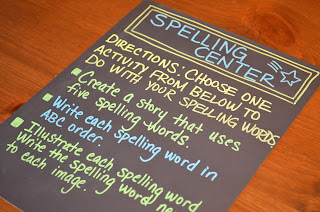 SPELLING
CENTER
DIRECTIONS: CHOOSE ONE
ACTIVITY FROM BELOW TO
DO WITH YOUR SPELLING WORDS
Create a story that uses
five spelling words.
Write each spelling word in
ABC order.
Illustrate each spelling word
Write the spelling word
to each image